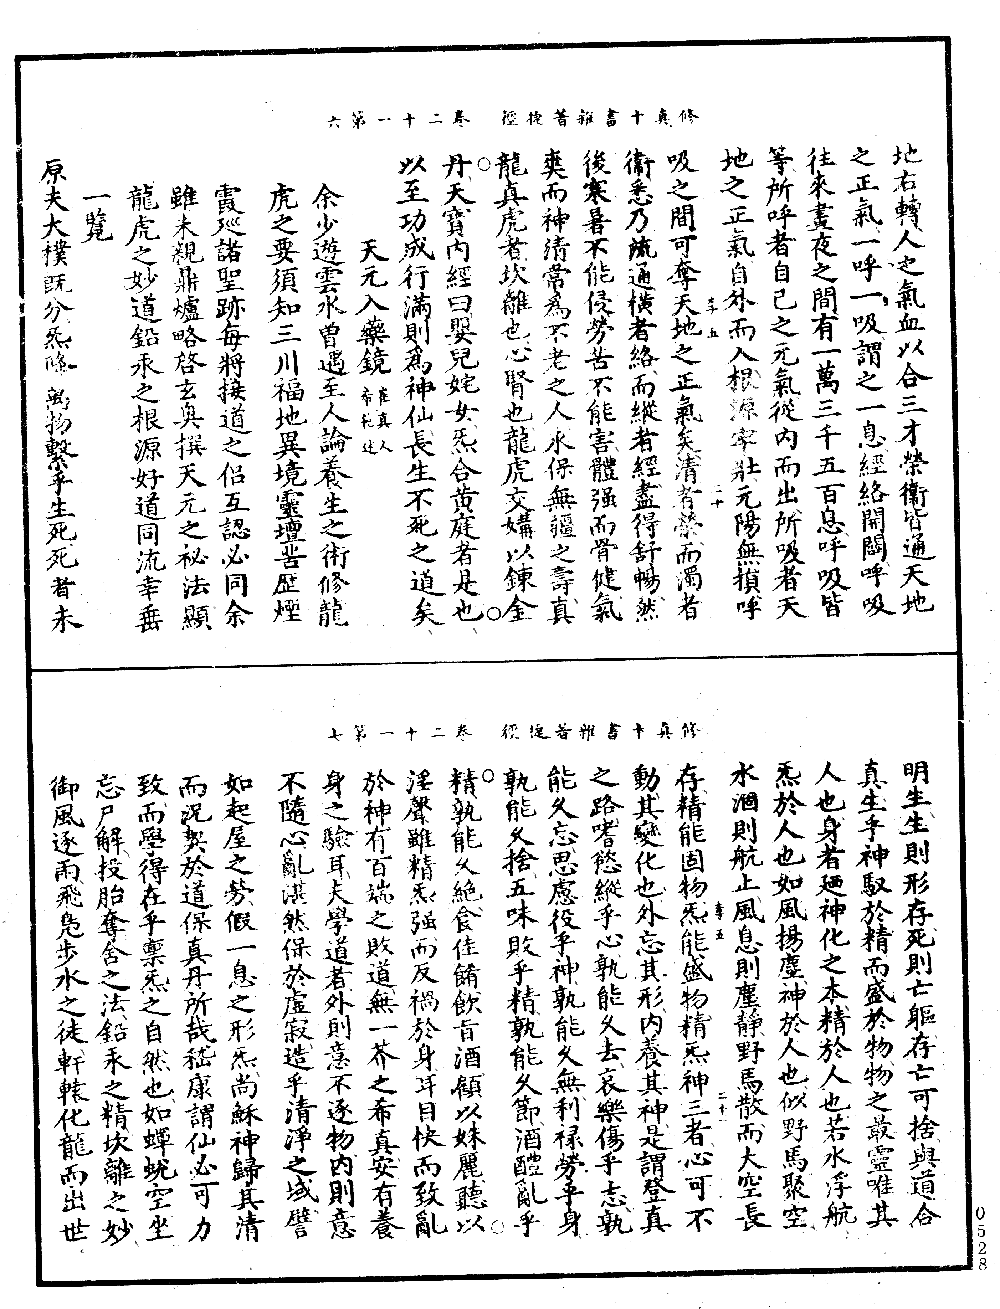 修真十書雜著捷徑　卷二十一第六
地右轉人之氣血以合三才榮衞皆通天地
之正氣一呼一吸謂之一息經絡開闔呼吸
往來晝夜之間有一萬三千五百息呼吸皆
等所呼者自己之元氣從內而出所吸者天
地之正氣自外而入根源牢壯元陽無損呼
吸之間可奪天地之正氣矣清者榮而濁者
衞悉乃流通橫者絡而縱者經盡得舒暢然
後寒暑不能侵勞苦不能害體强而骨健氣
爽而神清常爲不老之人永保無疆之壽真
龍真虎者坎離也心腎也龍虎交媾以鍊金
丹天寶內經曰嬰兒姹女炁合黃庭者是也
以至功成行滿則爲神仙長生不死之道矣
天元入藥鏡 崔真人希範述
余少遊雲水曾遇至人論養生之術修龍
虎之要須知三川福地異境靈壇皆歷煙
霞廵諸聖跡每將接道之侶互認必同余
雖未親鼎爐略啓玄奥撰天元之祕法顯
龍虎之妙道鉛汞之根源好道同流幸垂
一覽
原夫大樸旣分炁降萬物繫乎生死死者未
修真十書雜著捷徑　卷二十一第七
明生生則形存死則亡軀存亡可捨與道合
真生乎神馭於精而盛於物物之最靈唯其
人也身者廼神化之本精於人也若水浮航
炁於人也如風揚塵神於人也似野馬聚空
水涸則航止風息則塵靜野馬散而大空長
存精能固物炁能盛物精炁神三者心可不
動其變化也外忘其形內養其神是謂登真
之路嗜慾縱乎心孰能久去哀樂傷乎志孰
能久忘思慮役乎神孰能久無利祿勞乎身
孰能久捨五味敗乎精孰能久節酒醴亂乎
精孰能久絕食佳餚飲旨酒顧以姝麗聽以
淫聲雖精炁强而反禍於身耳目快而致亂
於神有百端之敗道無一芥之希真安有養
身之驗耳夫學道者外則意不逐物內則意
不隨心亂湛然保於虛寂造乎清淨之域譬
如起屋之勞假一息之形炁尚穌神歸其清
而況契於道保真丹所哉嵇康謂仙必可力
致而學得在乎稟炁之自然也如蟬蛻空坐
忘尸解投胎奪舍之法鉛汞之精坎離之妙
御風逐雨飛鳧步水之徒軒轅化龍而出世
0528